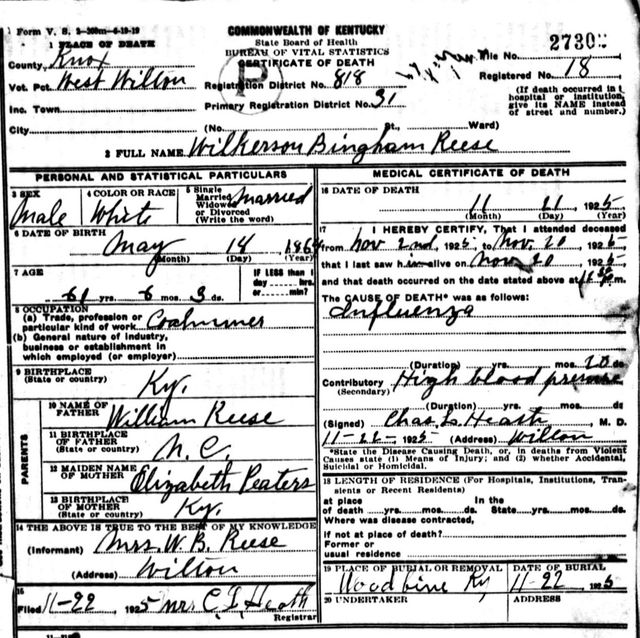 1 Form V. S. 2-200m-6-19-19
COMMONWEALTH OF KENTUCKY
State Board of Health
BUREAU OF VITAL STATISTICS
CERTIFICATE OF DEATH
1 PLACE OF DEATH
County Knox
File No. 2730
Vot. Pct. West Wilton
Registration District No. 818
Registered No. 18
P
Inc. Town
Primary Registration District No. 31
(If death occurred in
hospital or institution,
give its NAME instead
of street and number.)
City (No. St., Ward)
2 FULL NAME Wilkerson Bingham Reese
PERSONAL AND STATISTICAL PARTICULARS
3 SEX
Male
4 COLOR OR RACE
White
5 Single
Married
Widowed
or Divorced
(Write the word)
Married
6 DATE OF BIRTH
May 18 1864
(Month) (Day) (Year)
7 AGE
61 yrs. 6 mos. 3 ds.
IF LESS than 1
day hrs.
or min.?
8 OCCUPATION
(a) Trade, profession or
particular kind of work Coalminer
(b) General nature of industry,
business or establishment in
which employed (or employer)
9 BIRTHPLACE
(State or country) Ky.
PARENTS
10 NAME OF
FATHER William Reese
11 BIRTHPLACE
OF FATHER
(State or country) N.C.
12 MAIDEN NAME
OF MOTHER Elizabeth Peaters
13 BIRTHPLACE
OF MOTHER
(State or country) Ky.
14 THE ABOVE IS TRUE TO THE BEST OF MY KNOWLEDGE
(Informant) Mrs. W. B. Reese
(Address) Wilton
15
Filed 11-22 1925 Registrar
MEDICAL CERTIFICATE OF DEATH
16 DATE OF DEATH
11 21 1925
(Month) (Day) (Year)
17 I HEREBY CERTIFY, That I attended deceased
from Nov 2nd, 1925, to Nov. 20 1925
that I last saw him alive on Nov 20 1925
and that death occurred on the date stated above at m.
The CAUSE OF DEATH* was as follows:
Influenza
(Duration) yrs. mos. 20 ds
Contributory High blood pressure
(Secondary)
(Duration) yrs. mos. ds
(Signed) Chas. L. Heath, M. D.
11-22- 1925 (Address) Wilton
*State the Disease Causing Death, or, in deaths from Violent
Causes state (1) Means of Injury; and (2) whether Accidental,
Suicidal or Homicidal.
18 LENGTH OF RESIDENCE (For Hospitals, Institutions, Tran-
sients or Recent Residents)
At place In the
of death yrs. mos. ds. State yrs. mos. ds.
Where was disease contracted,
if not at place of death?
Former or
usual residence
19 PLACE OF BURIAL OR REMOVAL
Woodbine Ky
DATE OF BURIAL
11-22 1925
20 UNDERTAKER
ADDRESS